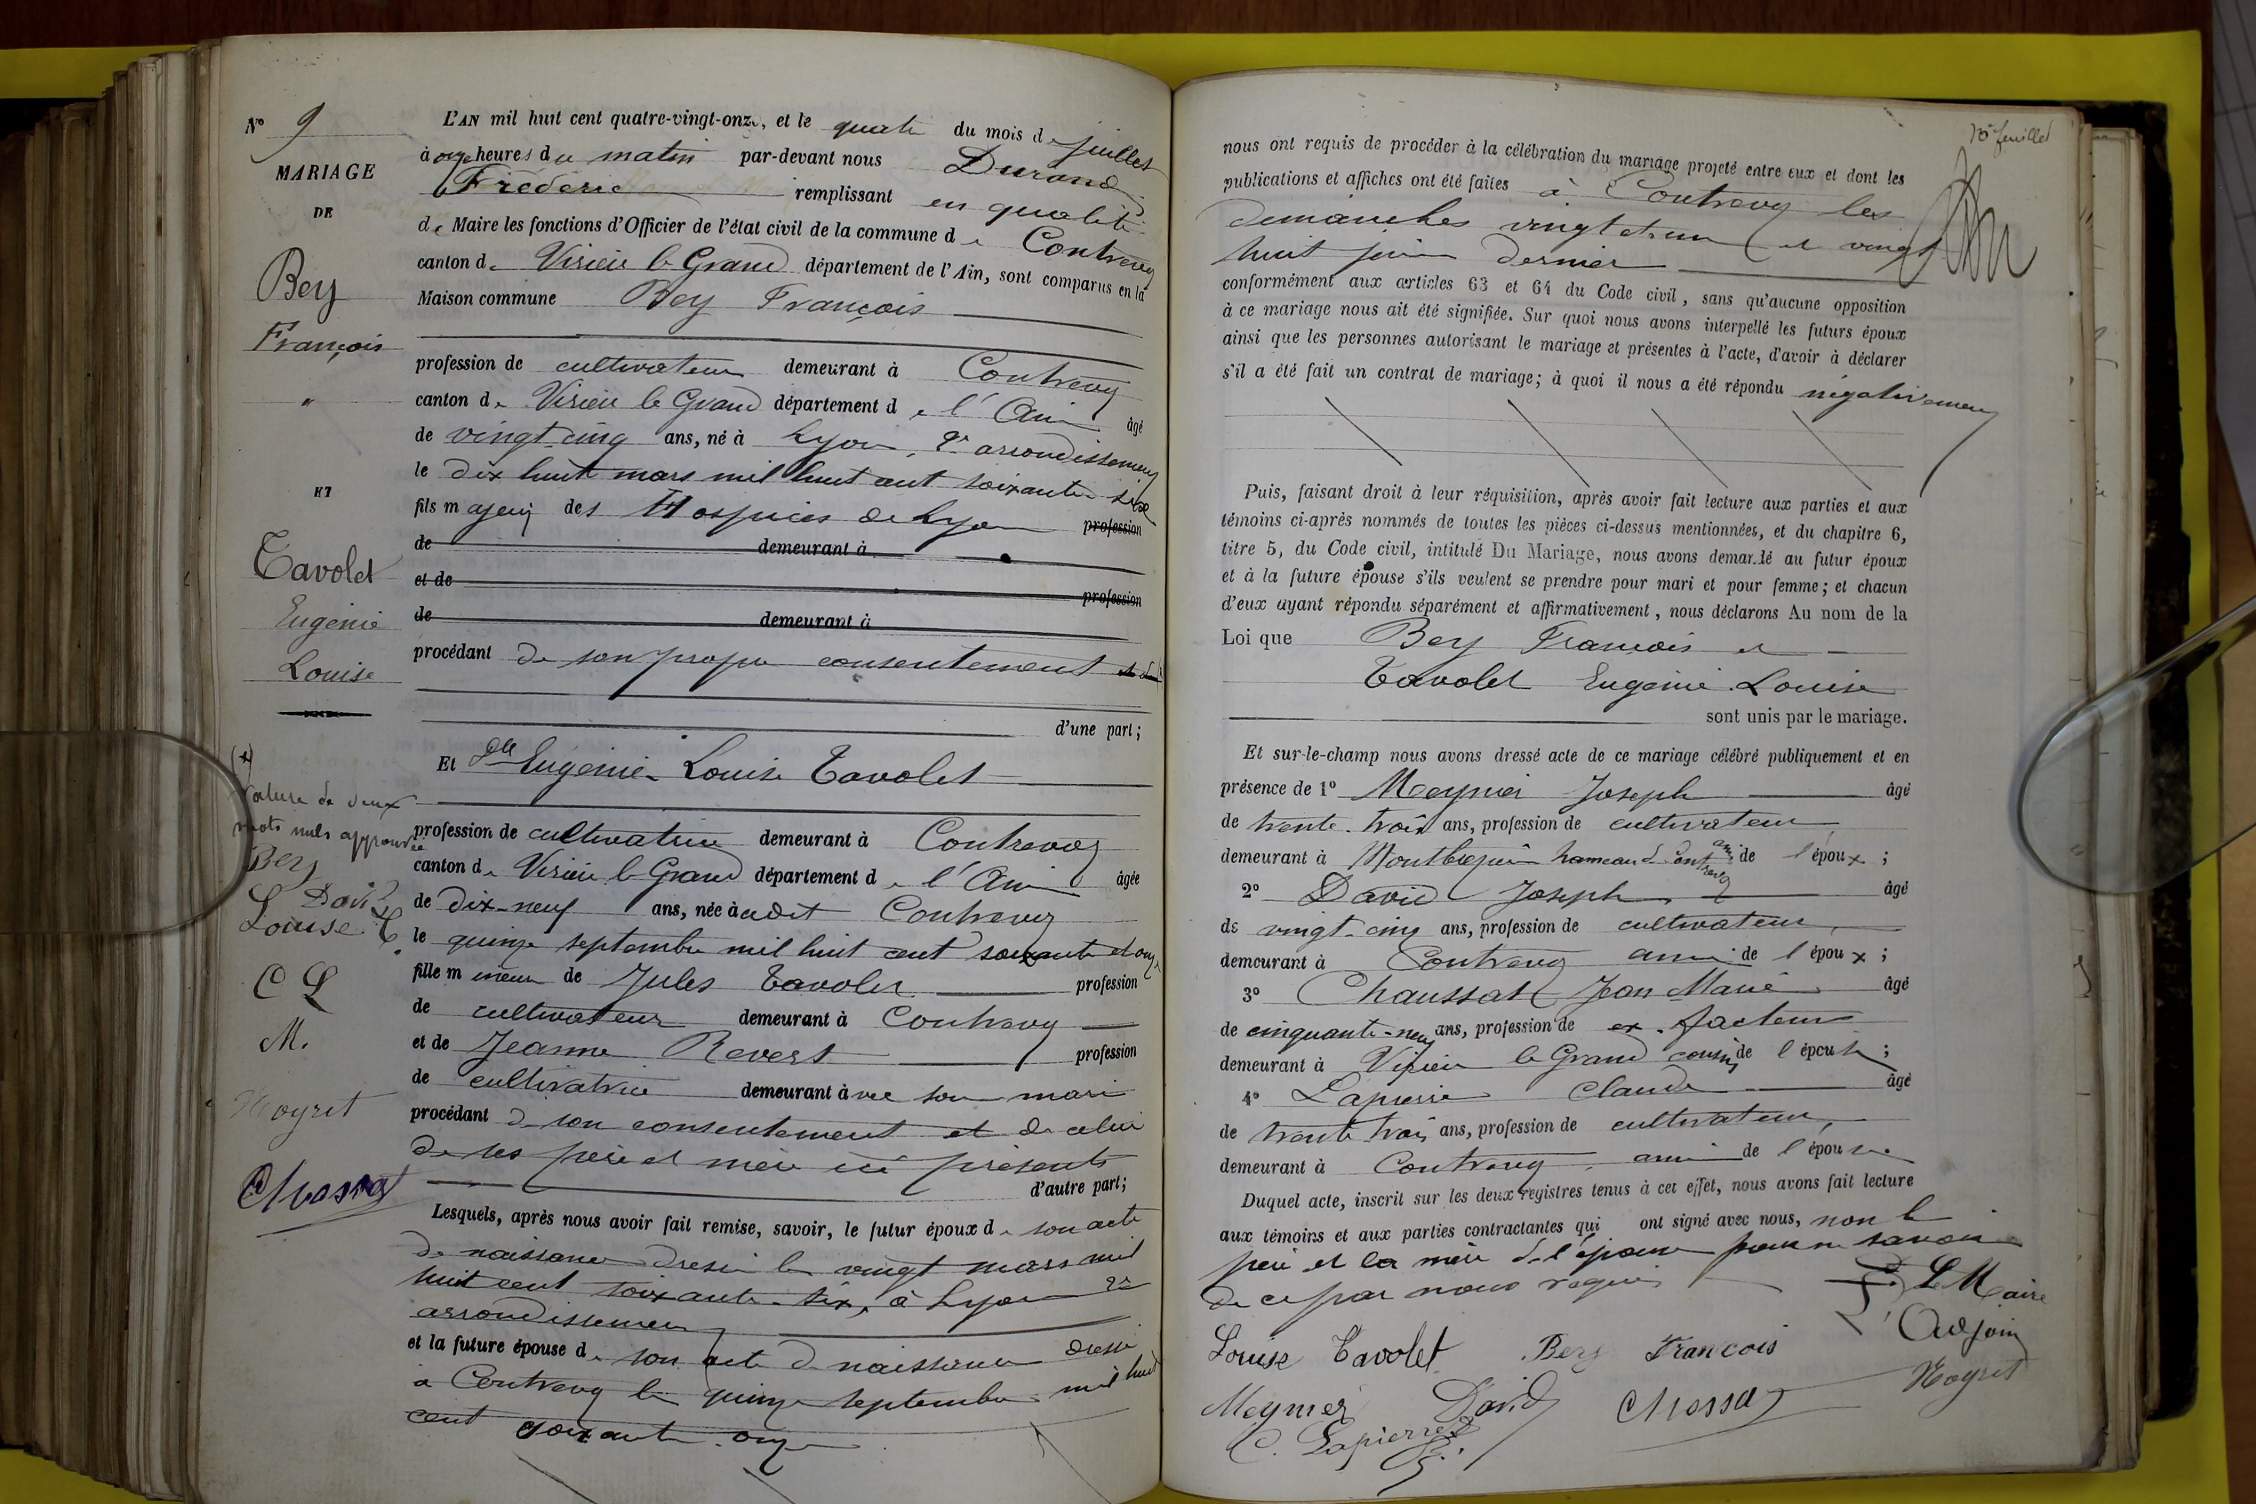 N° 9
MARIAGE
DE
Bey
François
"
ET
Tavolet
Eugénie
Louise
(+)
rature de deux
mots nuls approuvée
Bey
David
Louise T
C L
M.
Noyret
Chossat
L'AN mil huit cent quatre-vingt-onze, et le quatre du mois de juillet
à onze heures du matin par-devant nous Durand
Frédéric remplissant en qualité
de Maire les fonctions d'Officier de l'état civil de la commune de Contrevoz
canton de Virieu le Grand département de l'Ain, sont comparus en la
Maison commune Bey François
profession de cultivateur demeurant à Contrevoz
canton de Virieu le Grand département de l'Ain âgé
de vingt-cinq ans, né à Lyon, 2e arrondissement
le dix huit mars mil huit cent soixante-six
fils majeur des Hospices de Lyon profession
de demeurant à
et de profession
de demeurant à
procédant de son propre consentement
d'une part;
Et Dlle Eugénie Louise Tavolet
profession de cultivatrice demeurant à Contrevoz
canton de Virieu le Grand département de l'Ain âgée
de dix-neuf ans, née audit Contrevoz
le quinze septembre mil huit cent soixante et onze
fille mineure de Jules Tavolet profession
de cultivateur demeurant à Contrevoz
et de Jeanne Revert profession
de cultivatrice demeurant avec son mari
procédant de son consentement et de celui
de ses père et mère ici présents
d'autre part;
Lesquels, après nous avoir fait remise, savoir, le futur époux de son acte
de naissance dressé le vingt mars mil
huit cent soixante-six, à Lyon 2e
arrondissement
et la future épouse de son acte de naissance dressé
à Contrevoz le quinze septembre mil huit
cent soixante-onze
10e feuillet
nous ont requis de procéder à la célébration du mariage projeté entre eux et dont les
publications et affiches ont été faites à Contrevoz les
dimanches vingt et un et vingt
huit juin dernier
conformément aux articles 63 et 64 du Code civil, sans qu'aucune opposition
à ce mariage nous ait été signifiée. Sur quoi nous avons interpellé les futurs époux
ainsi que les personnes autorisant le mariage et présentes à l'acte, d'avoir à déclarer
s'il a été fait un contrat de mariage; à quoi il nous a été répondu négativement
Puis, faisant droit à leur réquisition, après avoir fait lecture aux parties et aux
témoins ci-après nommés de toutes les pièces ci-dessus mentionnées, et du chapitre 6,
titre 5, du Code civil, intitulé Du Mariage, nous avons demandé au futur époux
et à la future épouse s'ils veulent se prendre pour mari et pour femme; et chacun
d'eux ayant répondu séparément et affirmativement, nous déclarons Au nom de la
Loi que Bey François et
Tavolet Eugénie Louise
sont unis par le mariage.
Et sur-le-champ nous avons dressé acte de ce mariage célébré publiquement et en
présence de 1° Meynier Joseph âgé
de trente-trois ans, profession de cultivateur
demeurant à hameau de Contrevoz ami de l'époux;
2° David Joseph âgé
de vingt-cinq ans, profession de cultivateur,
demeurant à Contrevoz ami de l'époux;
3° Chaussat Jean Marie âgé
de cinquante-neuf ans, profession de ex-facteur
demeurant à Virieu le Grand cousin de l'épouse;
4° Lapierre Claude âgé
de trente trois ans, profession de cultivateur,
demeurant à Contrevoz, ami de l'épouse
Duquel acte, inscrit sur les deux registres tenus à cet effet, nous avons fait lecture
aux témoins et aux parties contractantes qui ont signé avec nous, non le
père et la mère de l'épouse pour ne savoir
de ce par nous requis
P. Le Maire
L'Adjoint
Louise Tavolet Bey François
Noyret
Meynier David Chossat
C. Lapierre